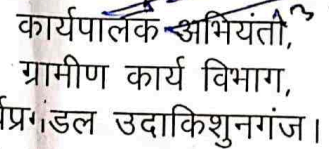 कार्यपालक अभियंता,
ग्रामीण कार्य विभाग,
उदाकिशुनगंज।